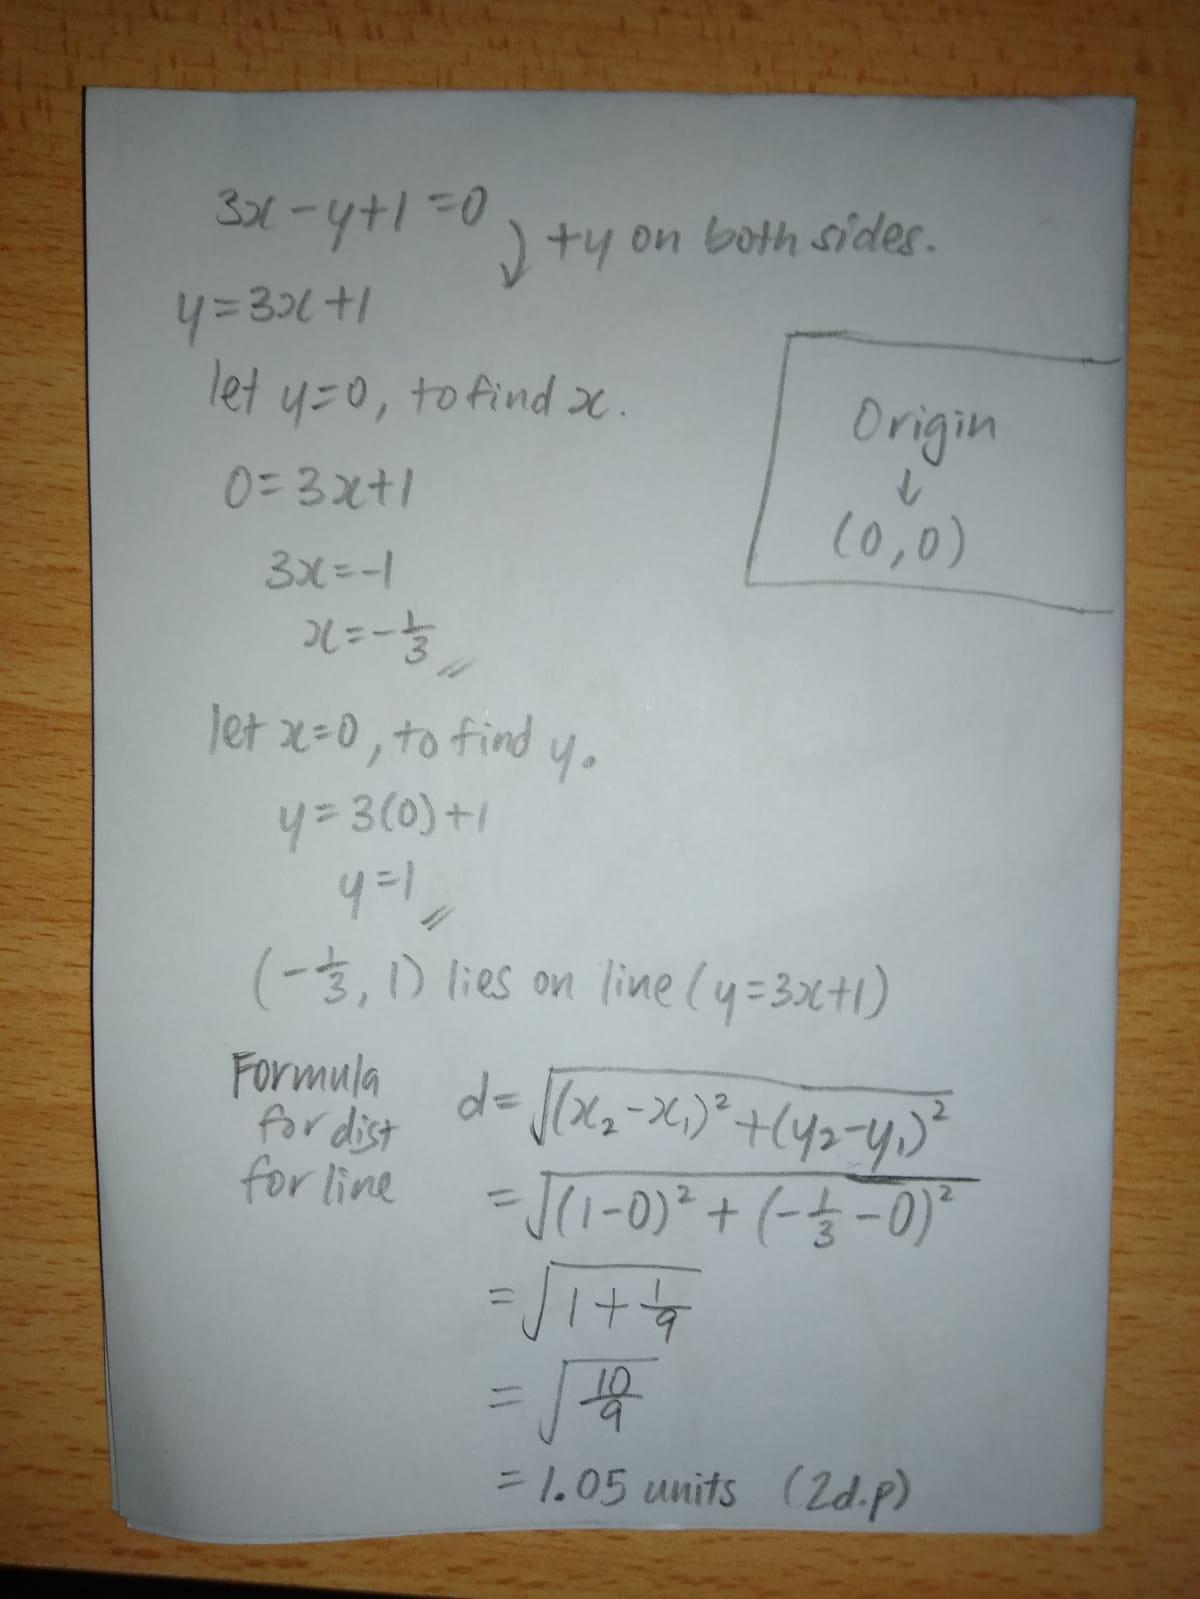 3x-y+1=0
+y on both sides.
y=3x+1
let y=0, to find x.
0=3x+1
3x=-1
x=-1/3
Origin
↓
(0,0)
let x=0, to find y.
y=3(0)+1
y=1
(-1/3, 1) lies on line (y=3x+1)
Formula
for dist
for line
d=√((x₂-x₁)²+(y₂-y₁)²)
=√((1-0)²+(-1/3-0)²)
=√(1+1/9)
=√(10/9)
=1.05 units (2d.p)